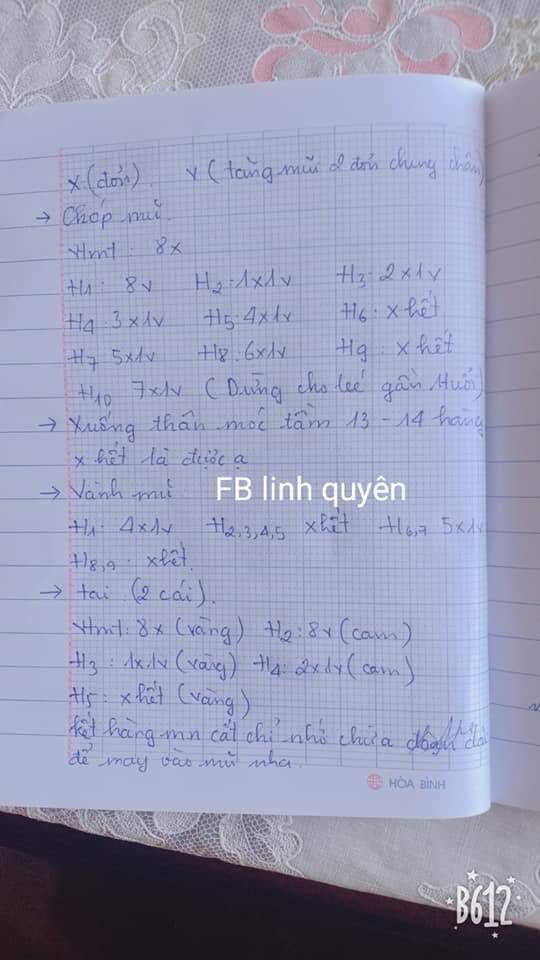 X (đơn). V (tăng mũi 2 đơn chung chân)
→ Chóp mũ.
Hmt: 8x
H1: 8v H2: 1x1v H3: 2x1v
H4: 3x1v H5: 4x1v H6: x hết
H7 5x1v H8: 6x1v H9: x hết
H10 7x1v (Dừng cho bé gần tuổi)
→ Xuống thân móc tầm 13 - 14 hàng
x hết là được ạ
→ Vành mũ
FB linh quyên
H1: 4x1v H2,3,4,5 x hết H6,7 5x1v
H8,9: x hết.
→ tai (2 cái).
Hmt: 8x (vàng) H2: 8v (cam)
H3: 1x1v (vàng) H4: 2x1v (cam)
H5: x hết (vàng)
kết hàng mn cắt chỉ nhớ chừa dài
để may vào mũ nha.
HÒA BÌNH
B612